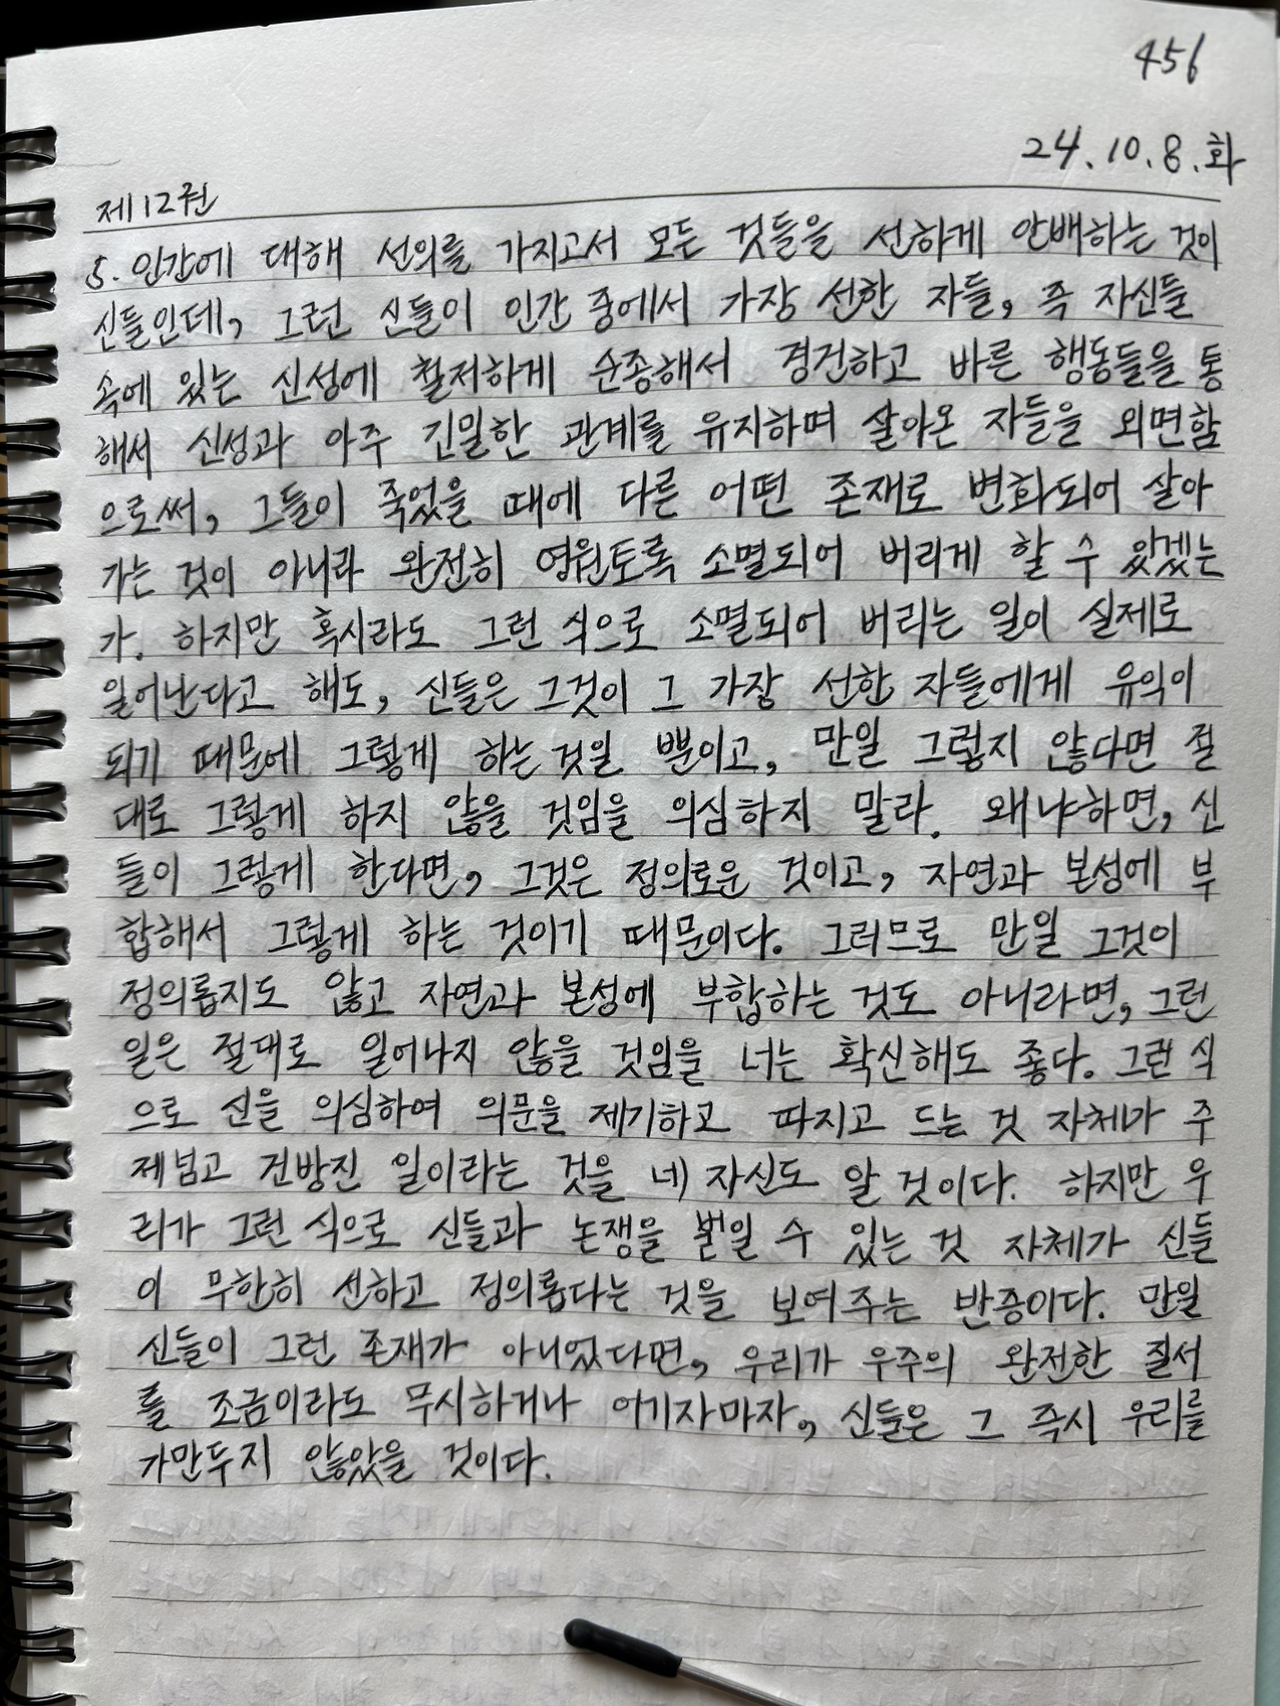 456
24.10.8.화
제12권
5. 인간에 대해 선의를 가지고서 모든 것들을 선하게 안배하는 것이
신들인데, 그런 신들이 인간 중에서 가장 선한 자들, 즉 자신들
속에 있는 신성에 철저하게 순종해서 경건하고 바른 행동들을 통
해서 신성과 아주 긴밀한 관계를 유지하며 살아온 자들을 외면함
으로써, 그들이 죽었을 때에 다른 어떤 존재로 변화되어 살아
가는 것이 아니라 완전히 영원토록 소멸되어 버리게 할 수 있겠는
가. 하지만 혹시라도 그런 식으로 소멸되어 버리는 일이 실제로
일어난다고 해도, 신들은 그것이 그 가장 선한 자들에게 유익이
되기 때문에 그렇게 하는 것일 뿐이고, 만일 그렇지 않다면 절
대로 그렇게 하지 않을 것임을 의심하지 말라. 왜냐하면, 신
들이 그렇게 한다면, 그것은 정의로운 것이고, 자연과 본성에 부
합해서 그렇게 하는 것이기 때문이다. 그러므로 만일 그것이
정의롭지도 않고 자연과 본성에 부합하는 것도 아니라면, 그런
일은 절대로 일어나지 않을 것임을 너는 확신해도 좋다. 그런 식
으로 신을 의심하여 의문을 제기하고 따지고 드는 것 자체가 주
제넘고 건방진 일이라는 것을 네 자신도 알 것이다. 하지만 우
리가 그런 식으로 신들과 논쟁을 벌일 수 있는 것 자체가 신들
이 무한히 선하고 정의롭다는 것을 보여주는 반증이다. 만일
신들이 그런 존재가 아니었다면, 우리가 우주의 완전한 질서
를 조금이라도 무시하거나 어기자마자, 신들은 그 즉시 우리를
가만두지 않았을 것이다.